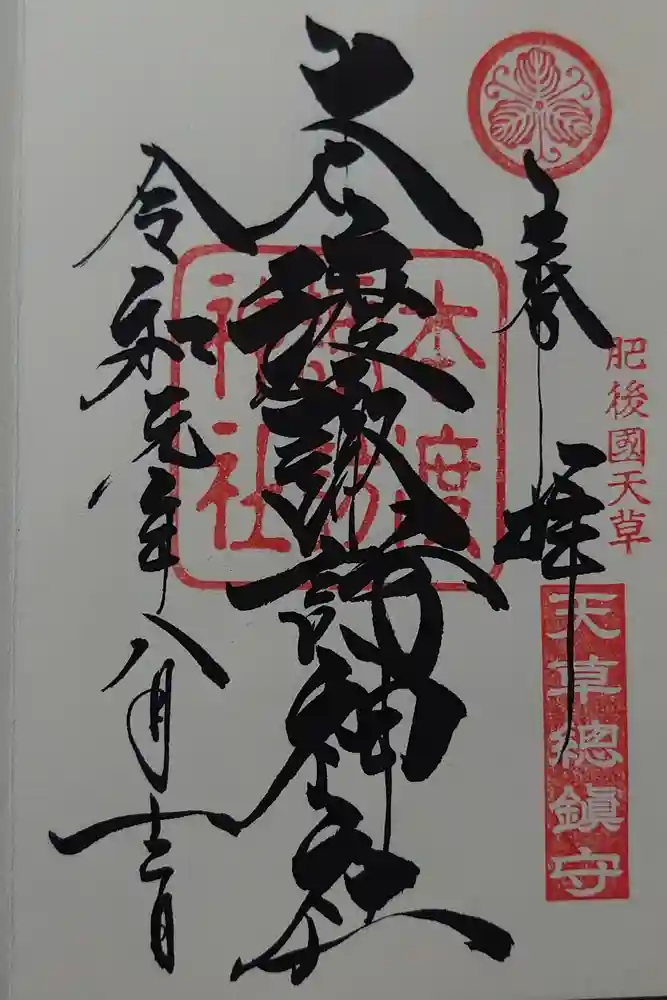 奉拝
肥後國天草
天草總鎮守
本渡諏訪神社
本渡
諏訪
神社
令和元年八月十三日